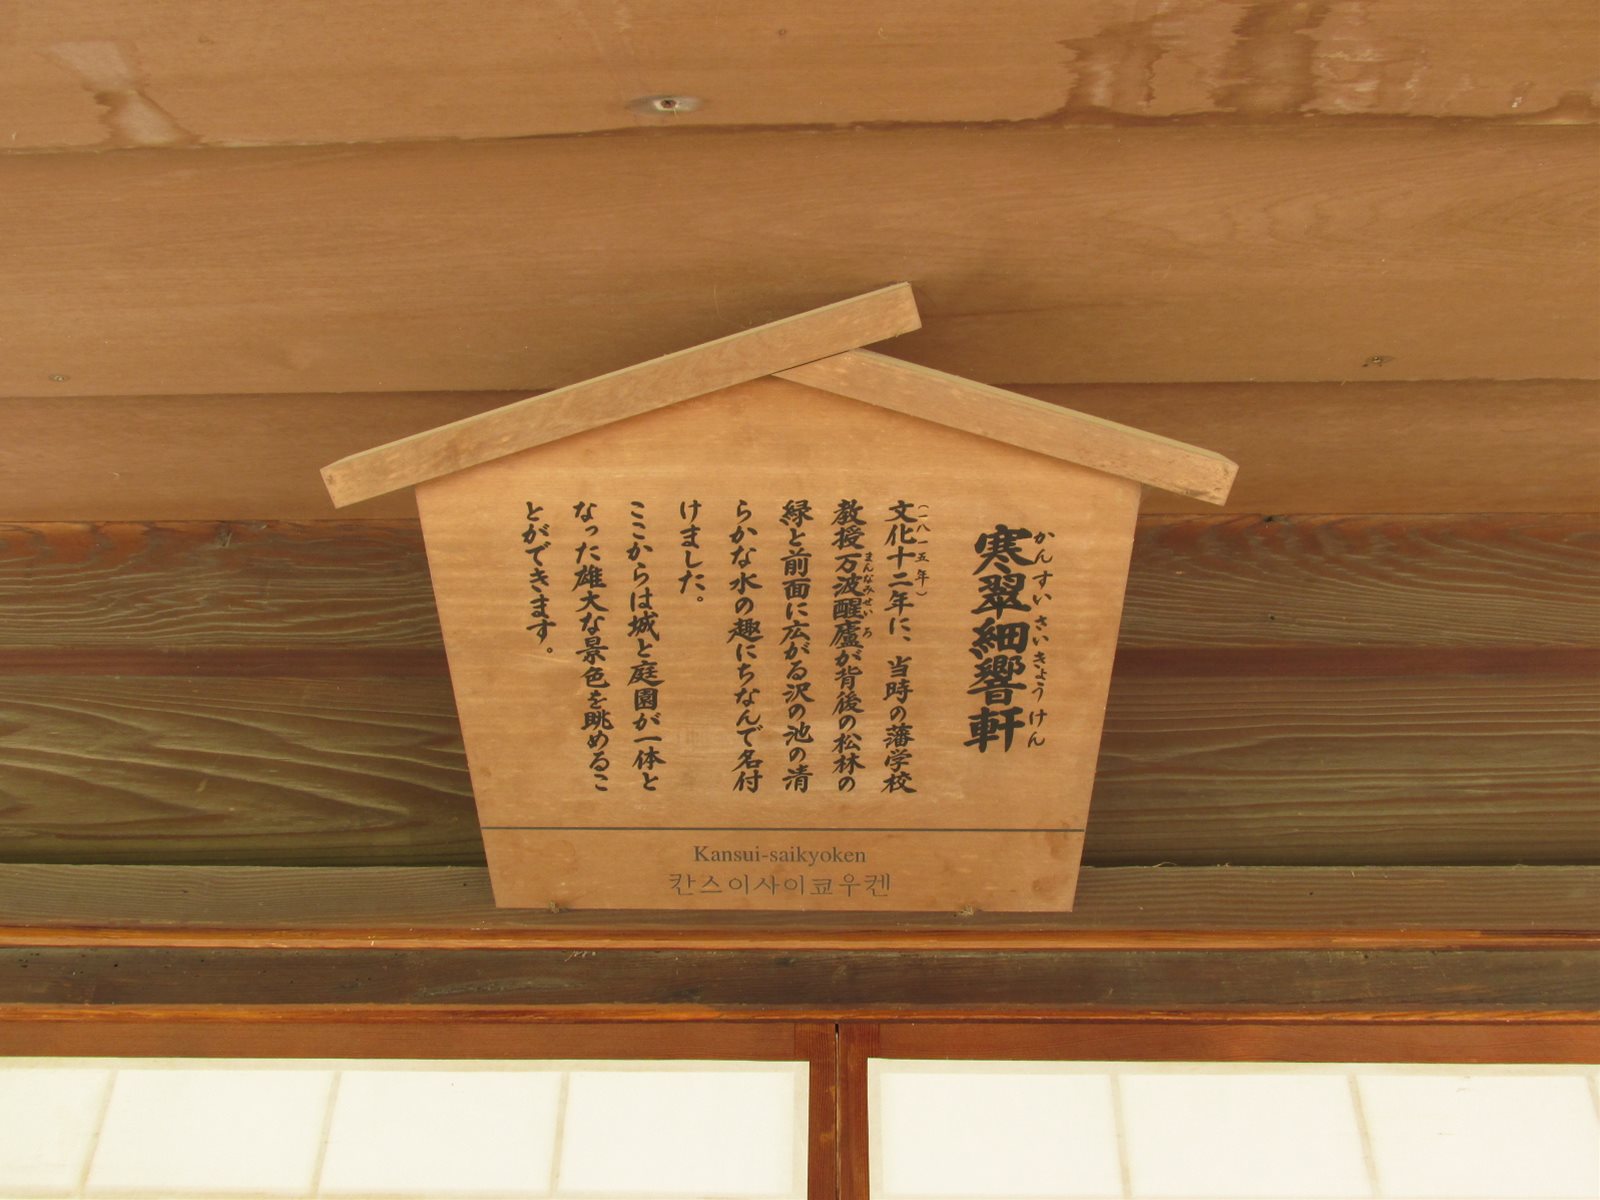 寒翠細響軒
かんすいさいきょうけん
文化十二年に、当時の藩学校
(一八一五年)
教授万波醒廬が背後の松林の
まんなみせいろ
緑と前面に広がる沢の池の清
らかな水の趣にちなんで名付
けました。
ここからは城と庭園が一体と
なった雄大な景色を眺めるこ
とができます。
Kansui-saikyoken
칸스이사이쿄우켄